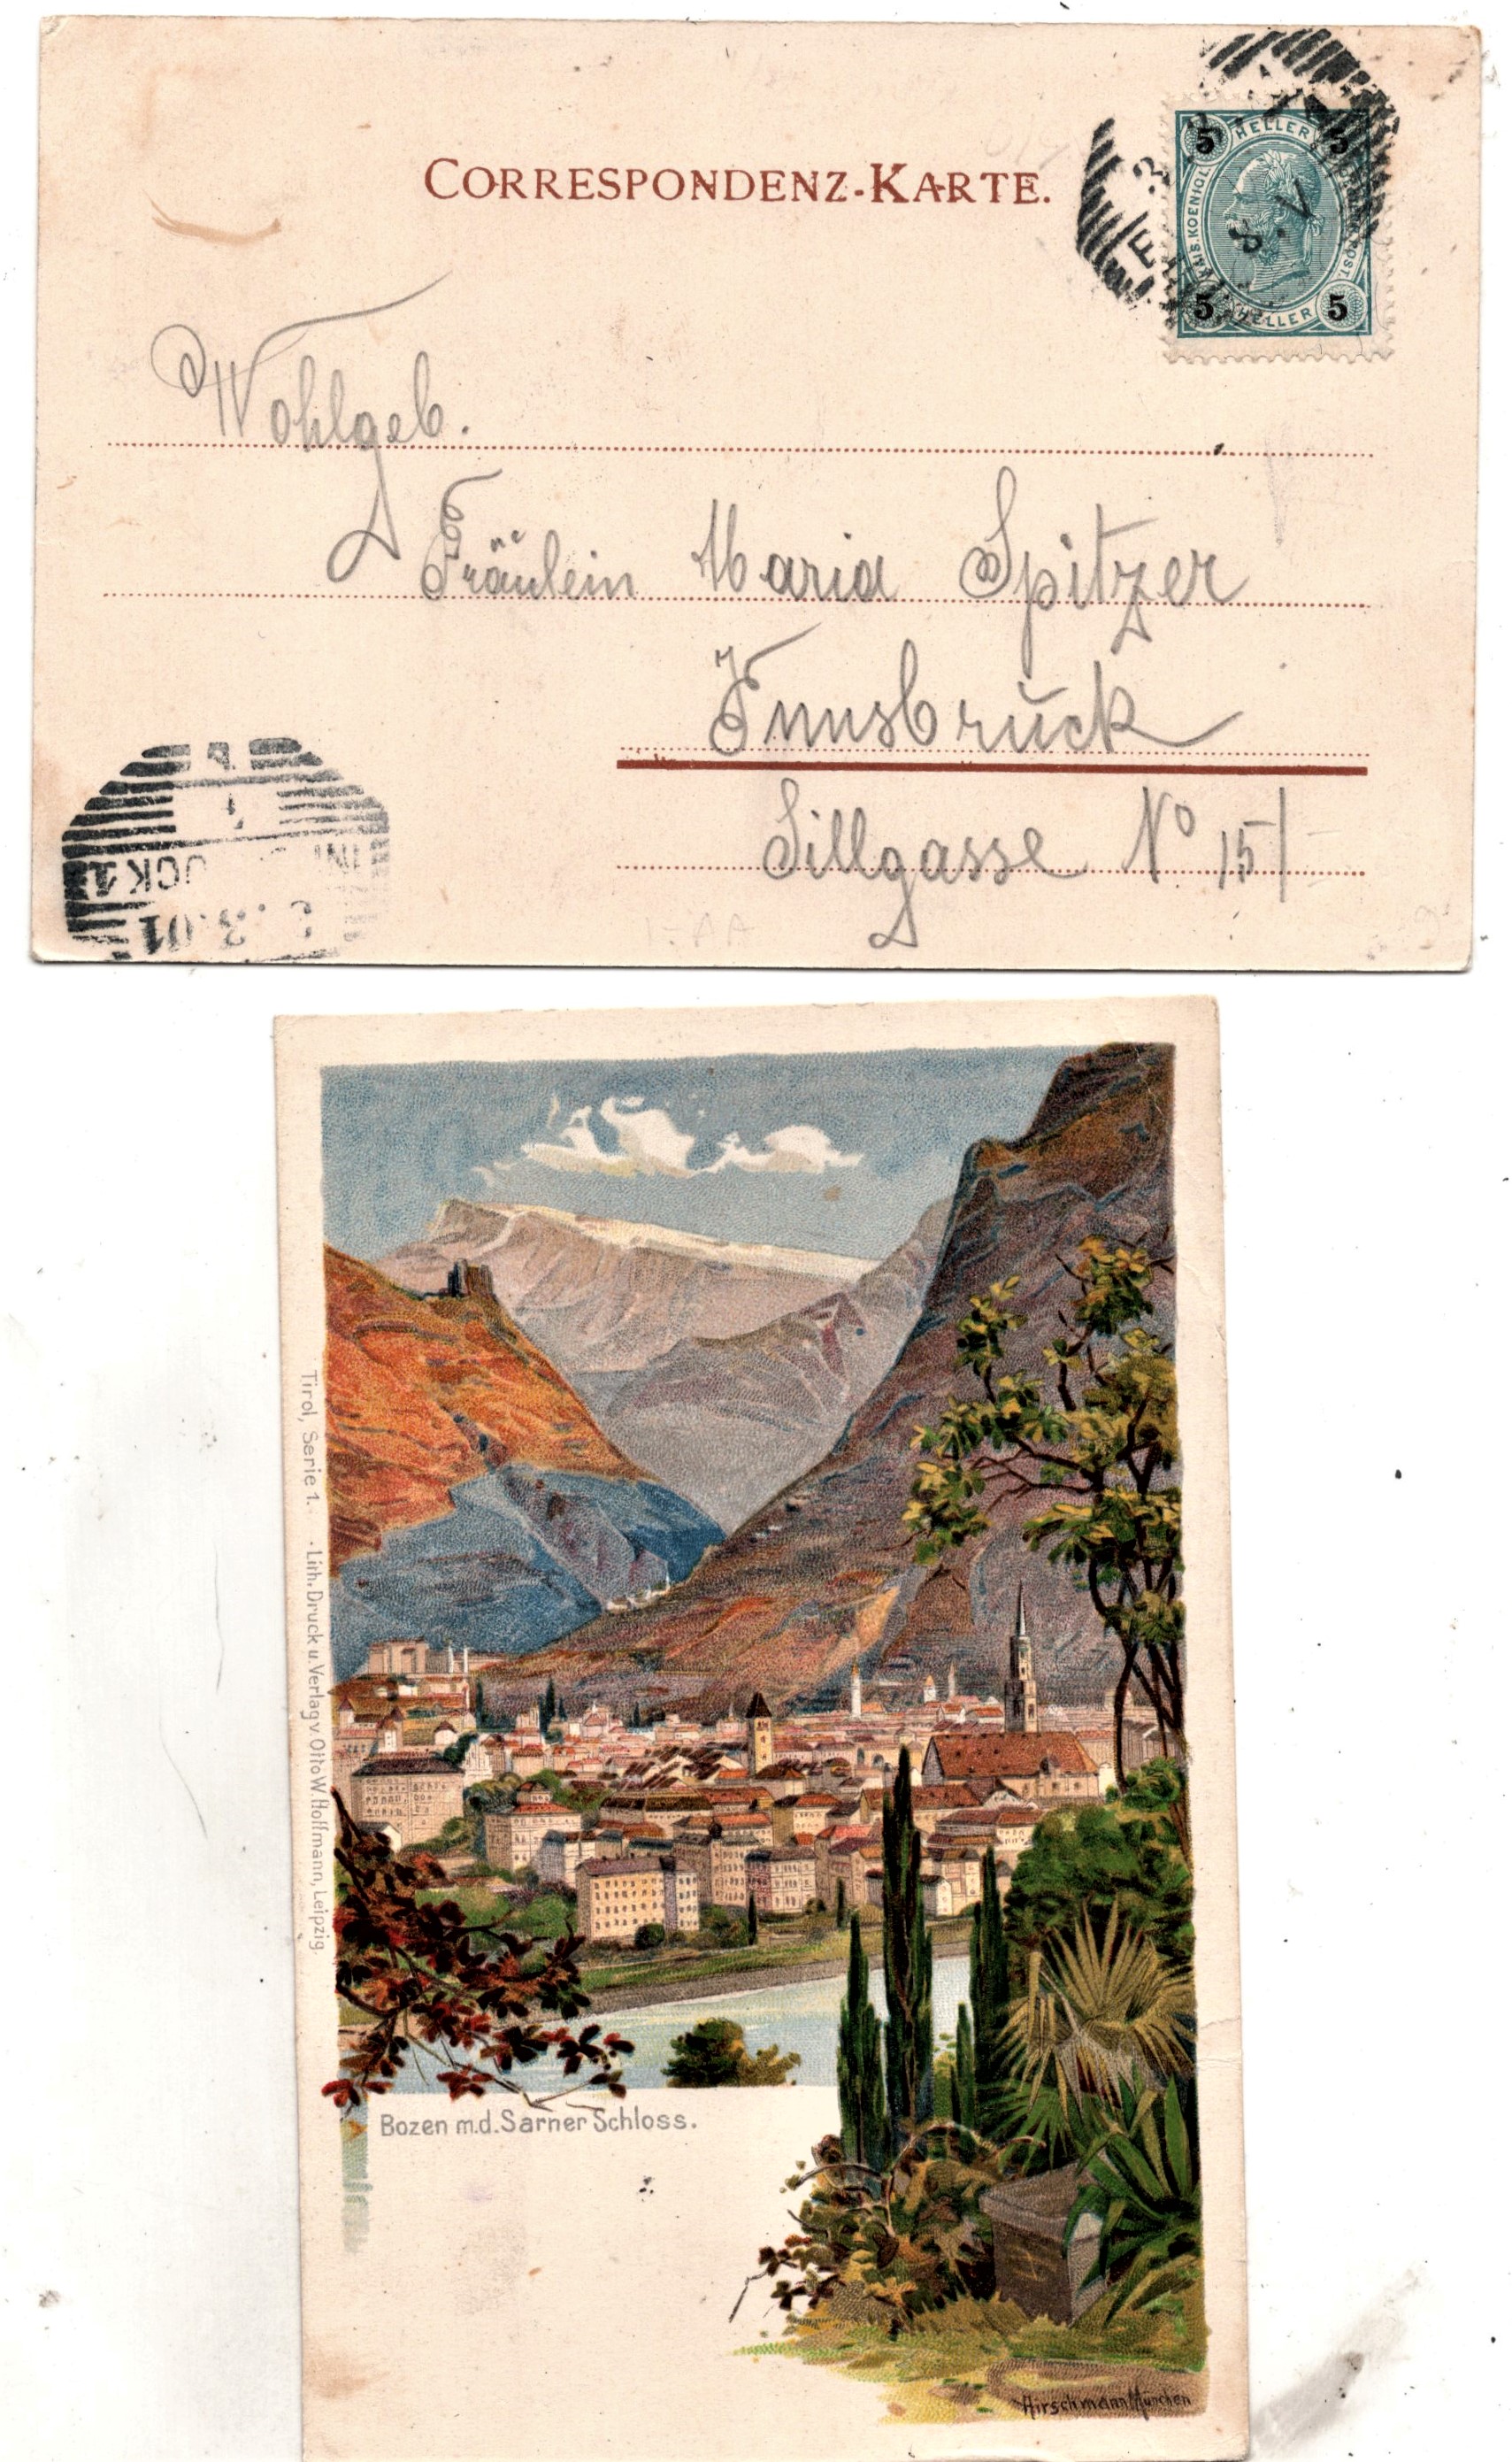 CORRESPONDENZ-KARTE.
5 HELLER 5
KAIS. KOENIGL.
POST.
5 HELLER 5
8. V
Wohlgeb.
Fräulein Maria Spitzer
Innsbruck
Sillgasse No 15/
UCK 1
3.01
Tirol, Serie 1. · Lith. Druck u. Verlag v Otto W. Hoffmann, Leipzig.
Bozen m.d. Sarner Schloss.
Hirschmann München